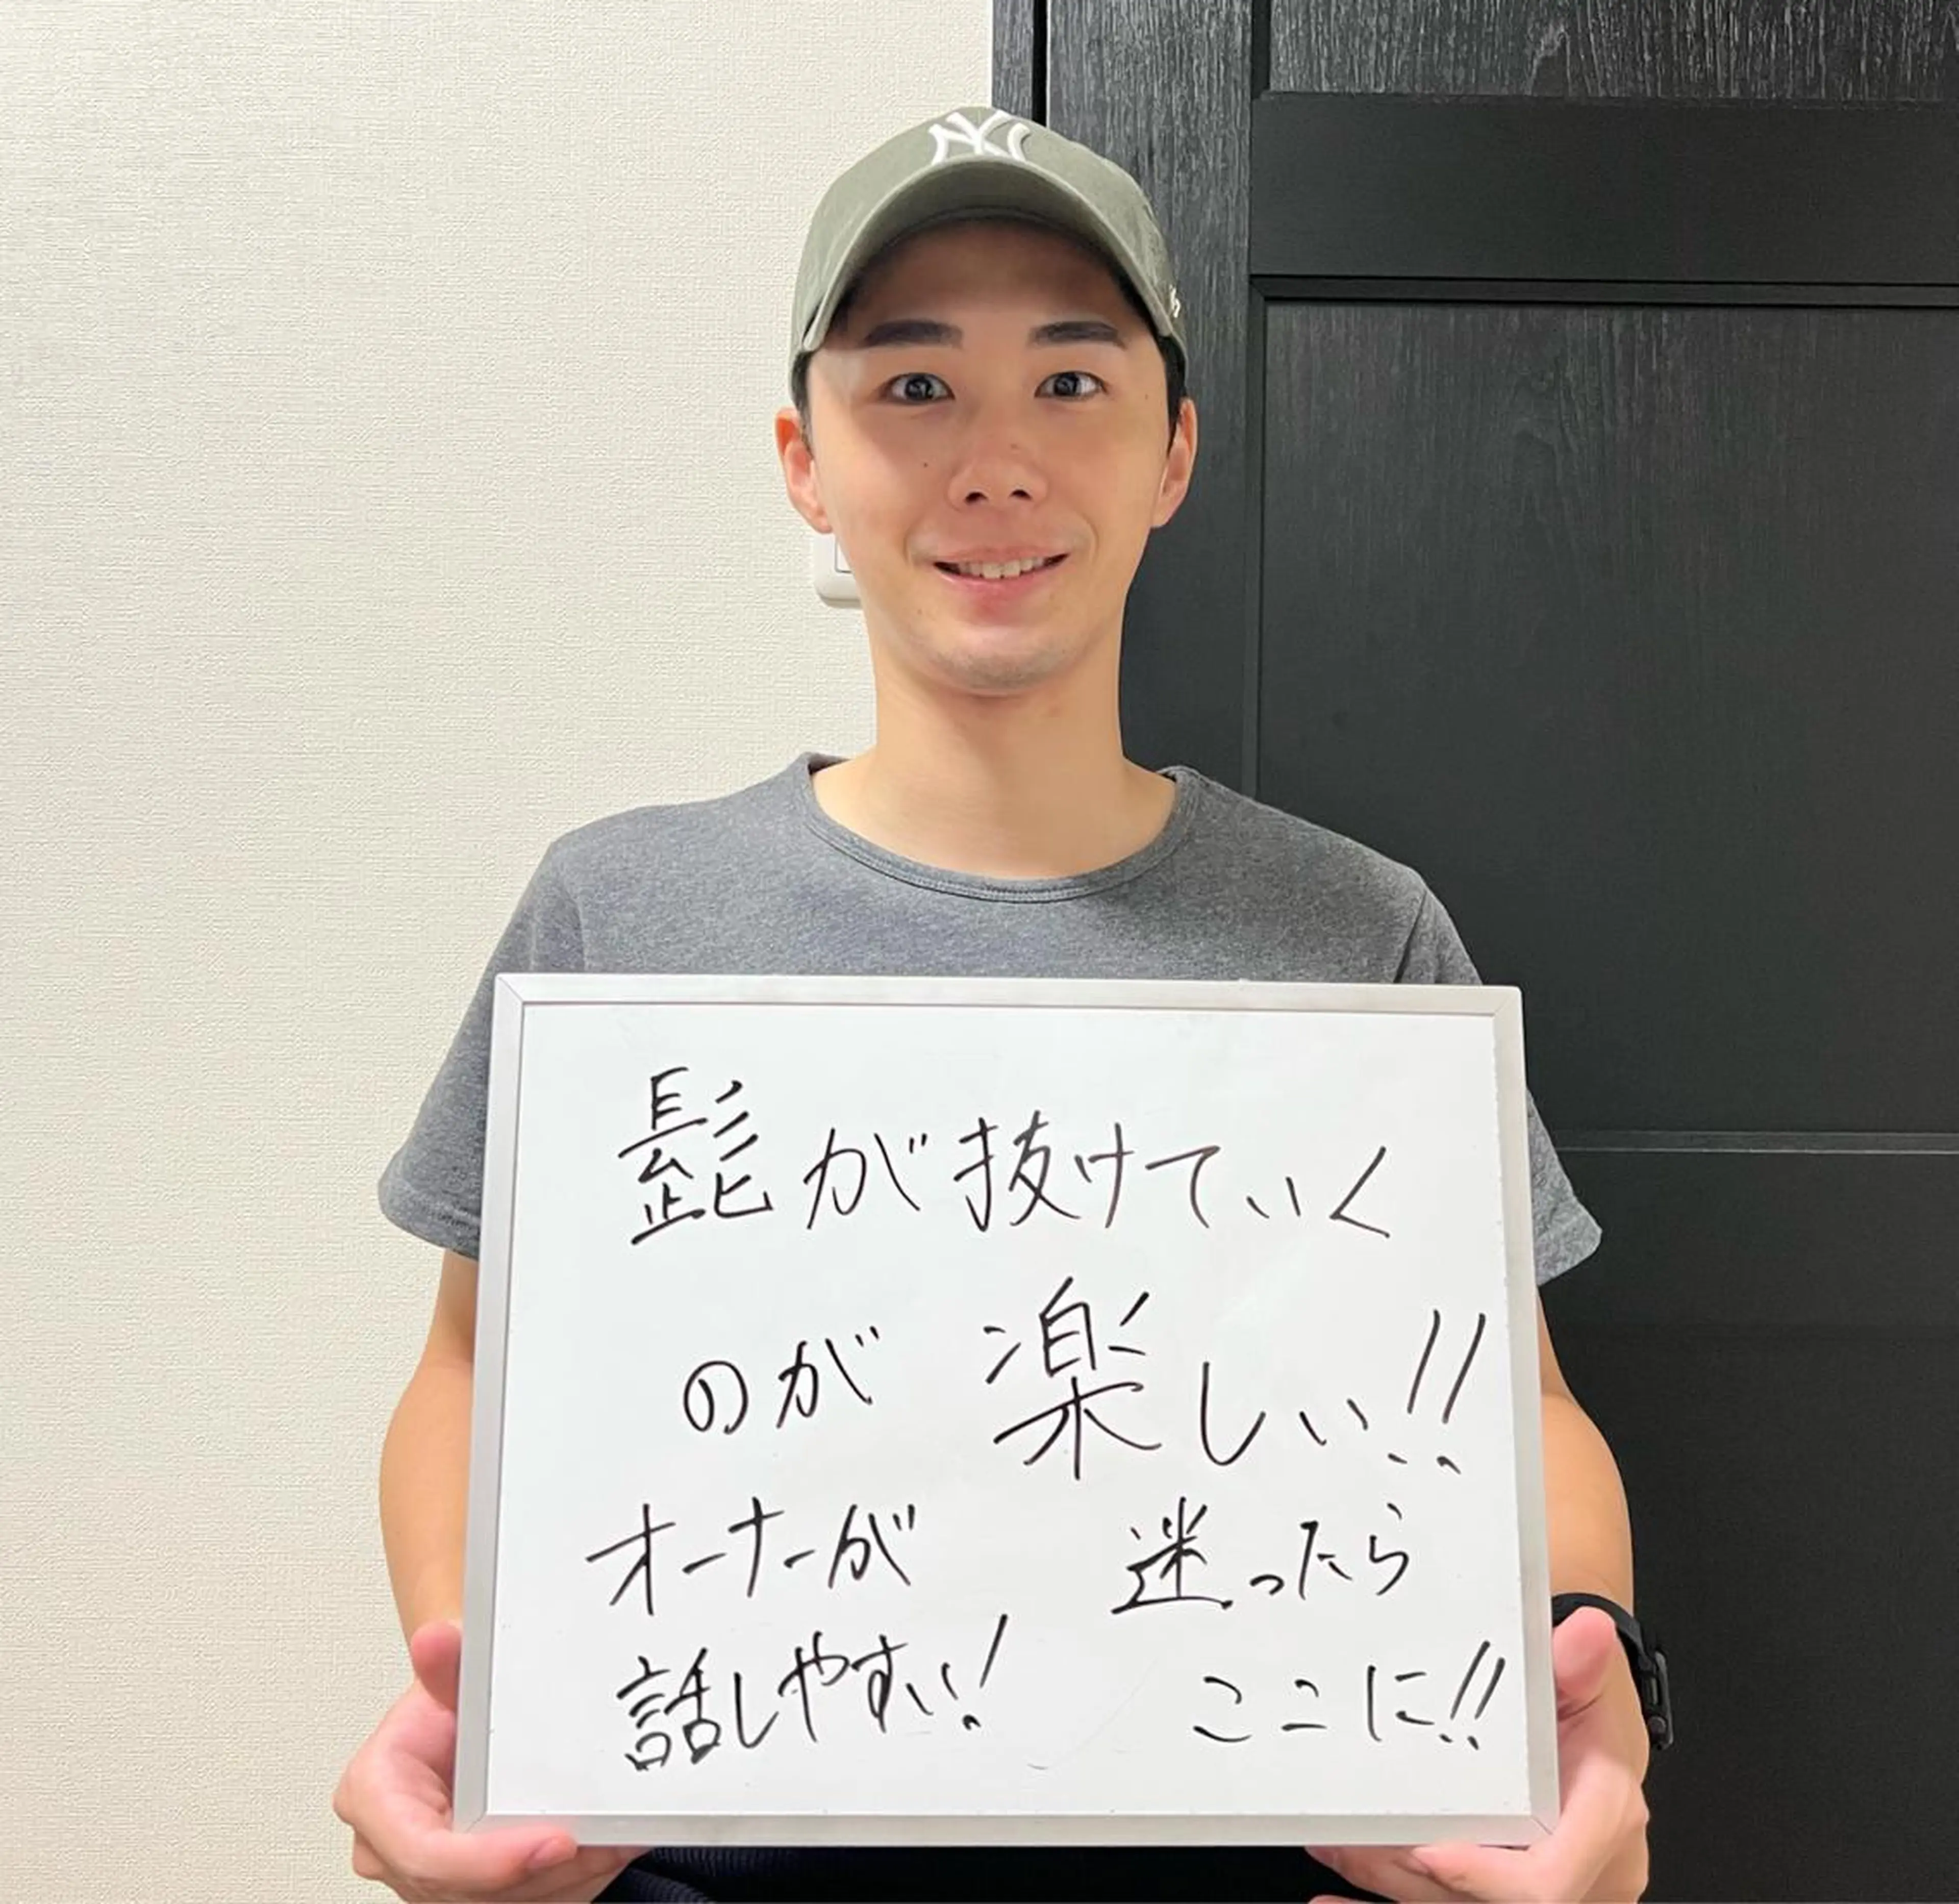 NY
髭が抜けていく
のが 楽しい!!
オーナーが
話しやすい!
迷ったら
ここに!!